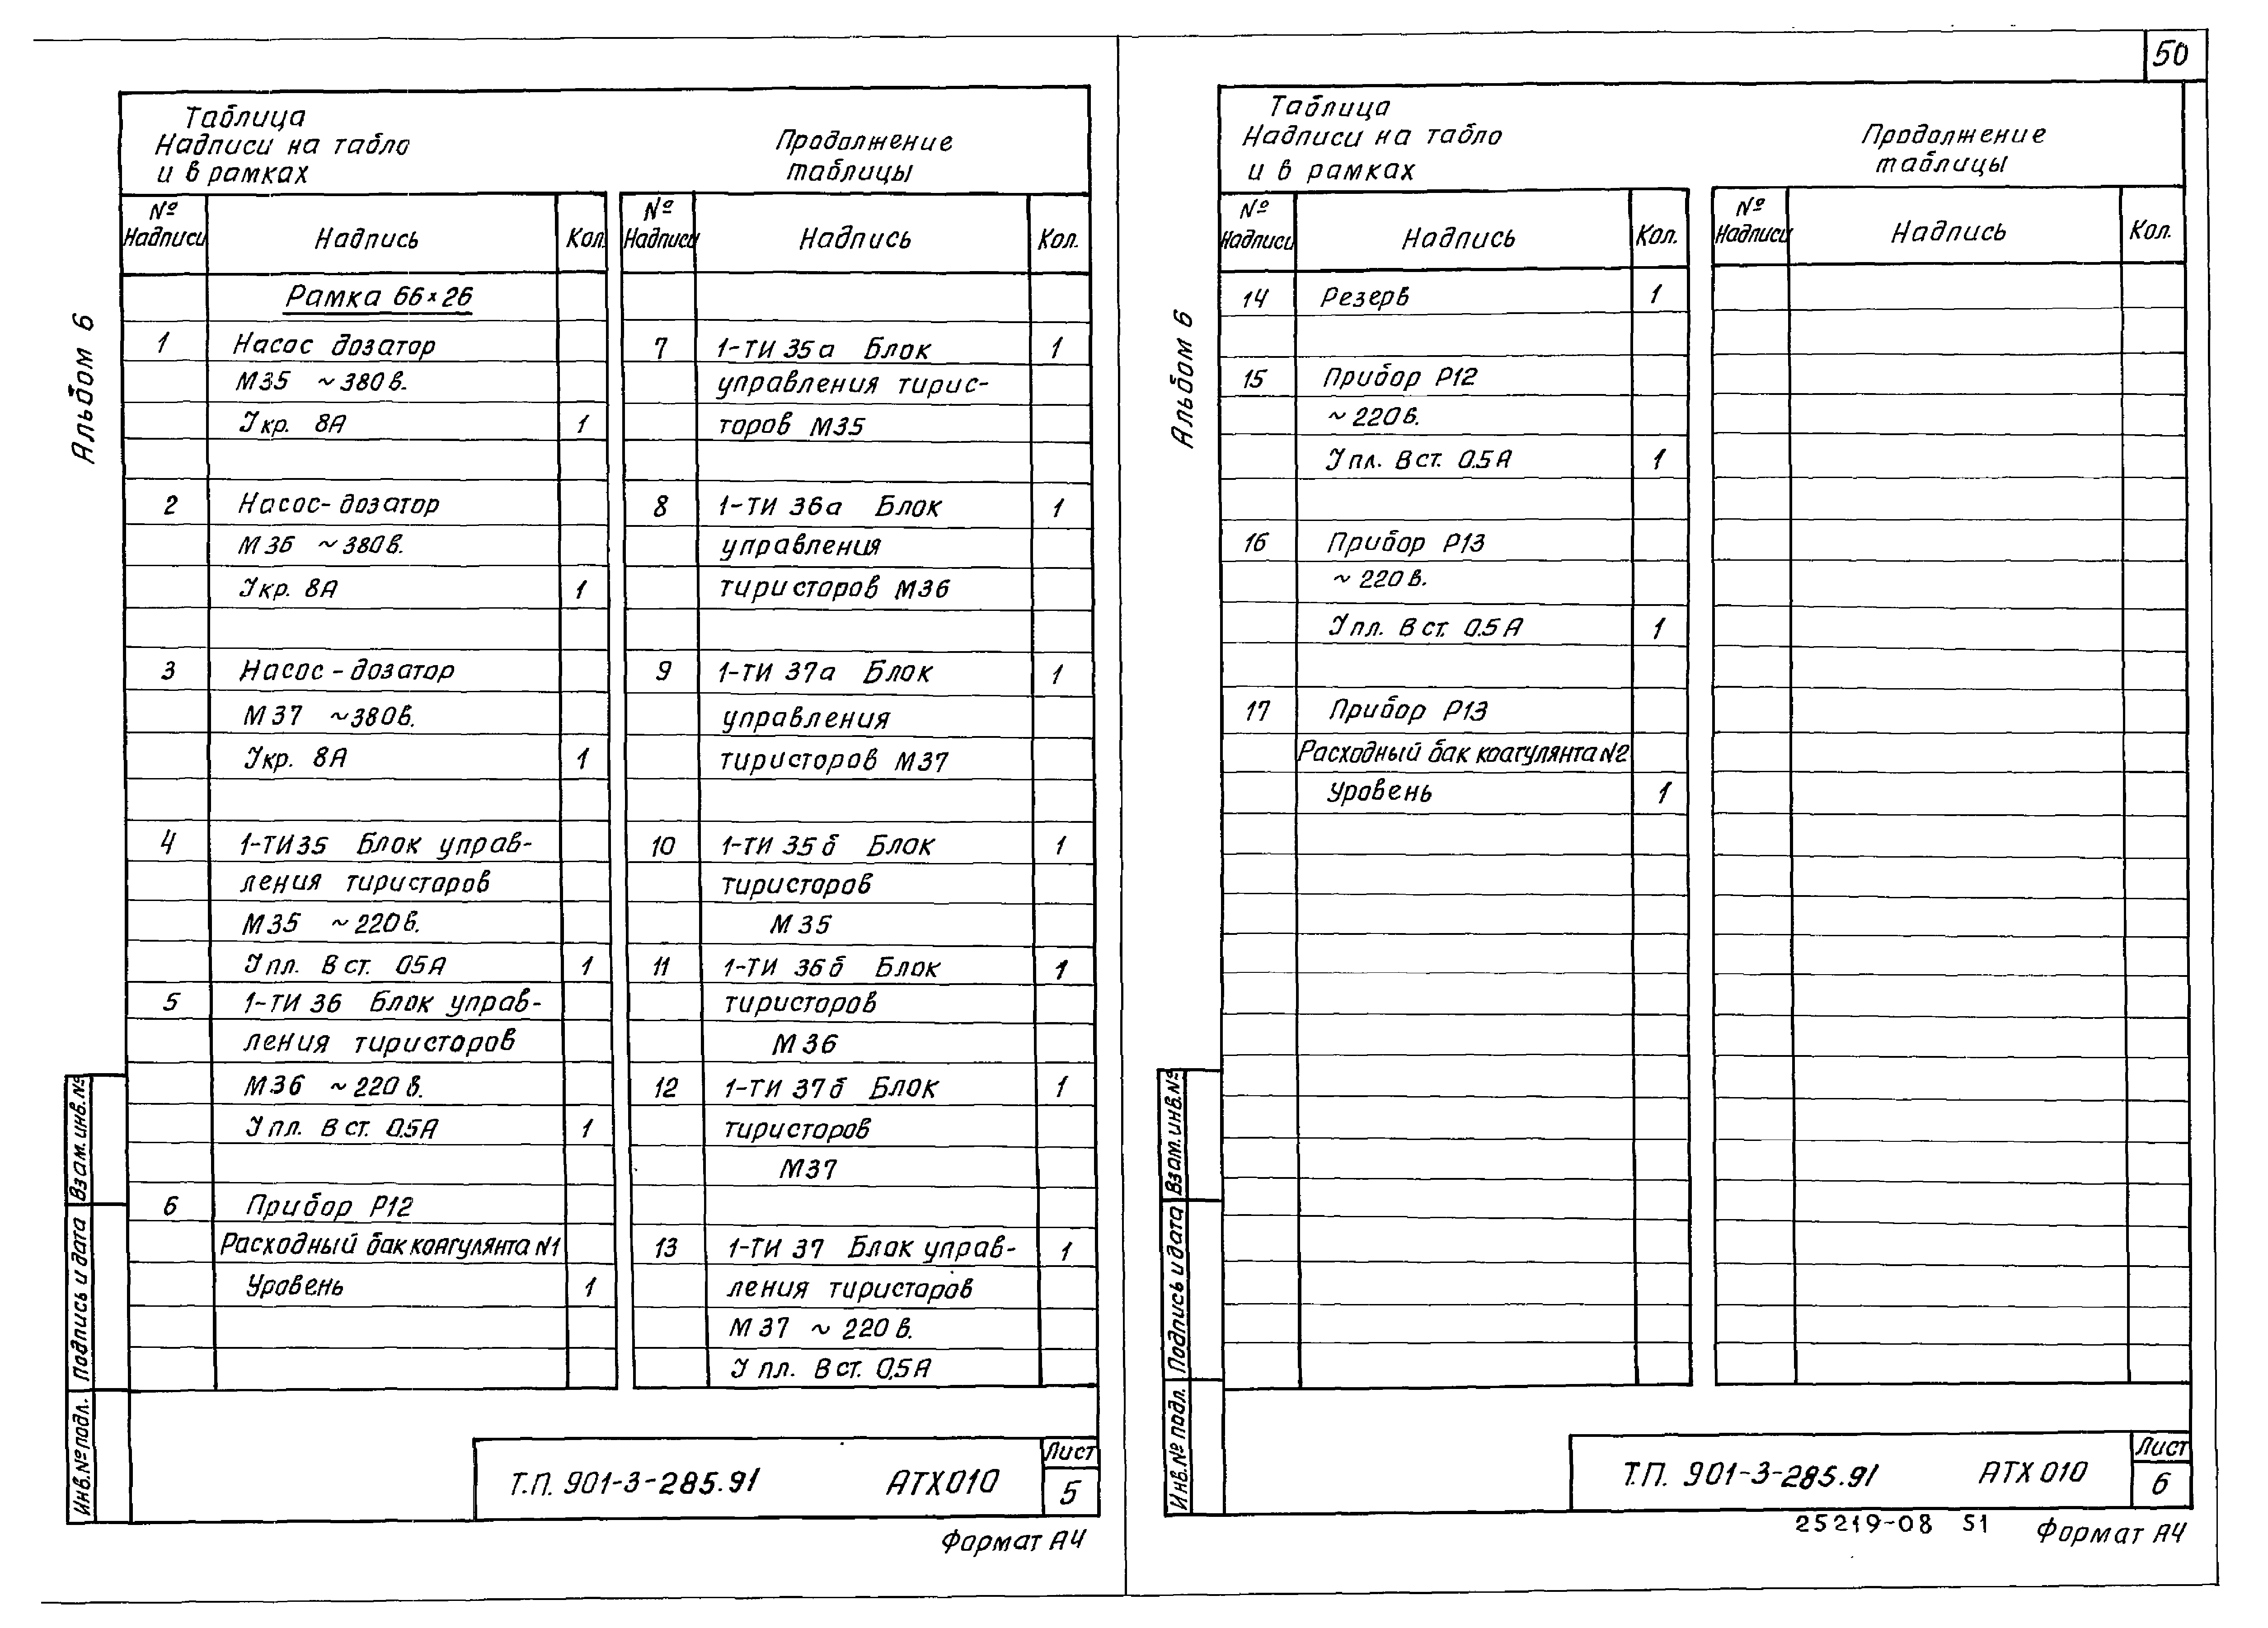 50
Альбом 6
Таблица
Надписи на табло
и в рамках
Продолжение
таблицы
№ Надписи Надпись Кол.
Рамка 66×26
1 Насос дозатор
М35 ~380в.
Iкр. 8А 1
2 Насос-дозатор
М36 ~380в.
Iкр. 8А 1
3 Насос-дозатор
М37 ~380в.
Iкр. 8А 1
4 1-ТИ35 Блок управ-
ления тиристоров
М35 ~220в.
I пл. Вст. 05А 1
5 1-ТИ 36 Блок управ-
ления тиристоров
М36 ~220в.
I пл. Вст. 0.5А 1
6 Прибор Р12
Расходный бак коагулянта N1
Уровень 1
№ Надписи Надпись Кол.
7 1-ТИ 35а Блок 1
управления тирис-
торов М35
8 1-ТИ 36а Блок 1
управления
тиристоров М36
9 1-ТИ 37а Блок 1
управления
тиристоров М37
10 1-ТИ 35б Блок 1
тиристоров
М35
11 1-ТИ 36б Блок 1
тиристоров
М36
12 1-ТИ 37б Блок 1
тиристоров
М37
13 1-ТИ 37 Блок управ- 1
ления тиристоров
М37 ~220в.
I пл. Вст. 0,5А
Взам. инв. №
Подпись и дата
Инв. № подл.
Т.П. 901-3-285.91 АТХ010
Лист
5
Формат А4
Альбом 6
Таблица
Надписи на табло
и в рамках
Продолжение
таблицы
№ Надписи Надпись Кол.
14 Резерв 1
15 Прибор Р12
~220в.
I пл. Вст. 0.5А 1
16 Прибор Р13
~220в.
I пл. Вст. 0.5А 1
17 Прибор Р13
Расходный бак коагулянта N2
Уровень 1
№ Надписи Надпись Кол.
Взам. инв. №
Подпись и дата
Инв. № подл.
Т.П. 901-3-285.91 АТХ010
Лист
6
25219-08 51
Формат А4